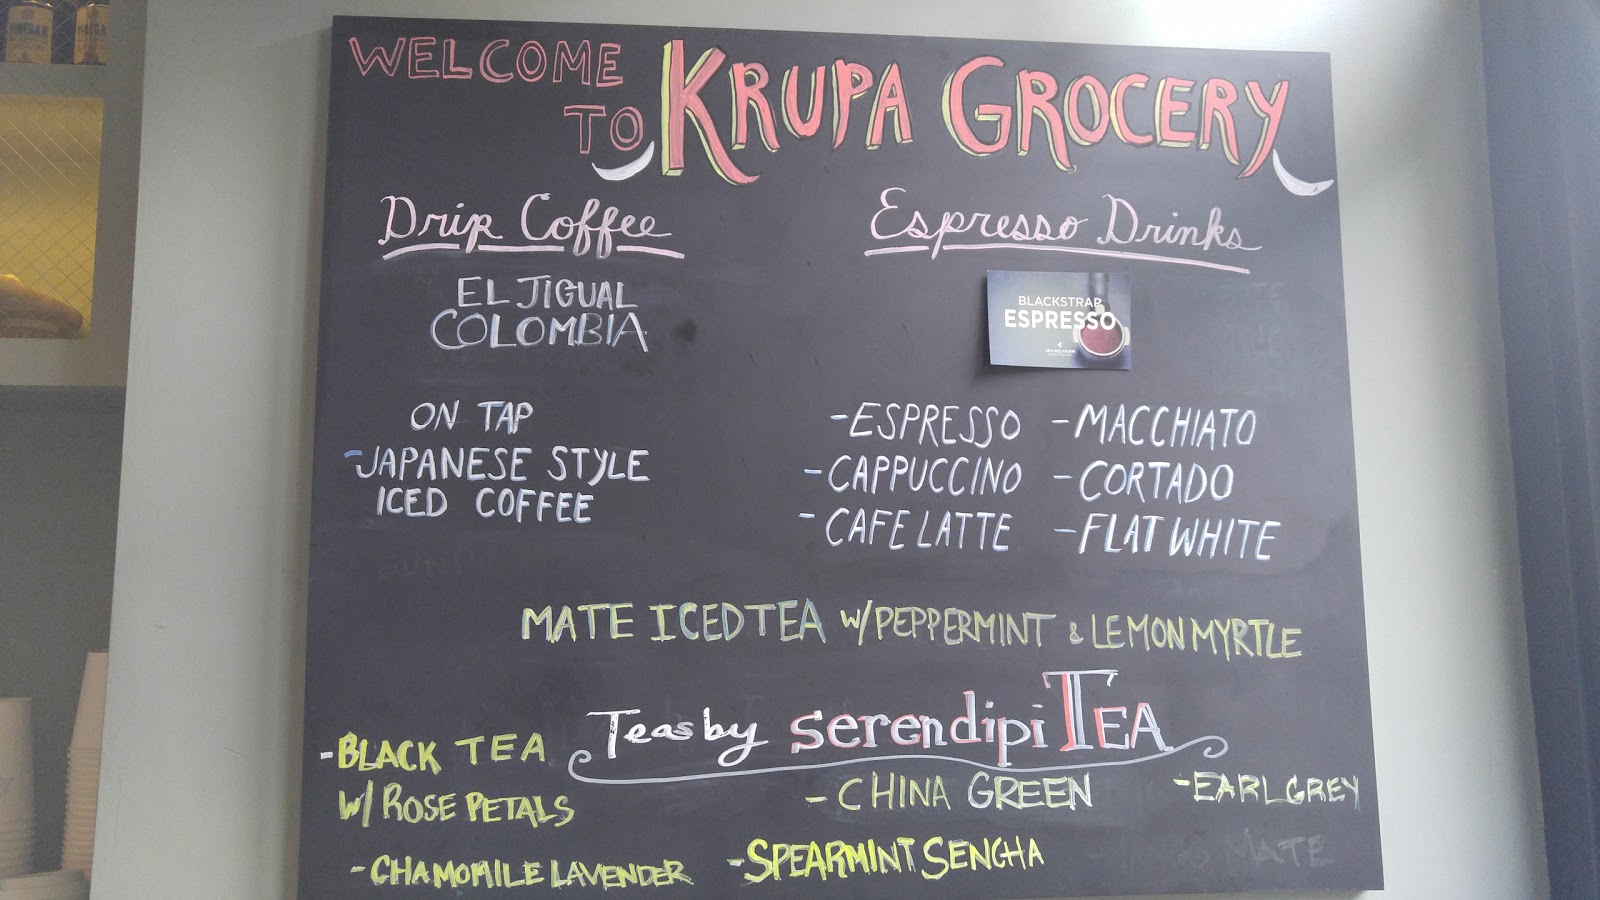 WELCOME
TO KRUPA GROCERY
Drip Coffee
EL JIGUAL
COLOMBIA
ON TAP
-JAPANESE STYLE
ICED COFFEE
Espresso Drinks
BLACKSTRAP
ESPRESSO
IRVING FARM
-ESPRESSO -MACCHIATO
-CAPPUCCINO -CORTADO
-CAFE LATTE -FLAT WHITE
MATE ICED TEA W/PEPPERMINT & LEMON MYRTLE
Teas by serendipiTEA
-BLACK TEA
W/ ROSE PETALS
-CHINA GREEN -EARL GREY
-CHAMOMILE LAVENDER -SPEARMINT SENCHA
MATE
VINEGAR